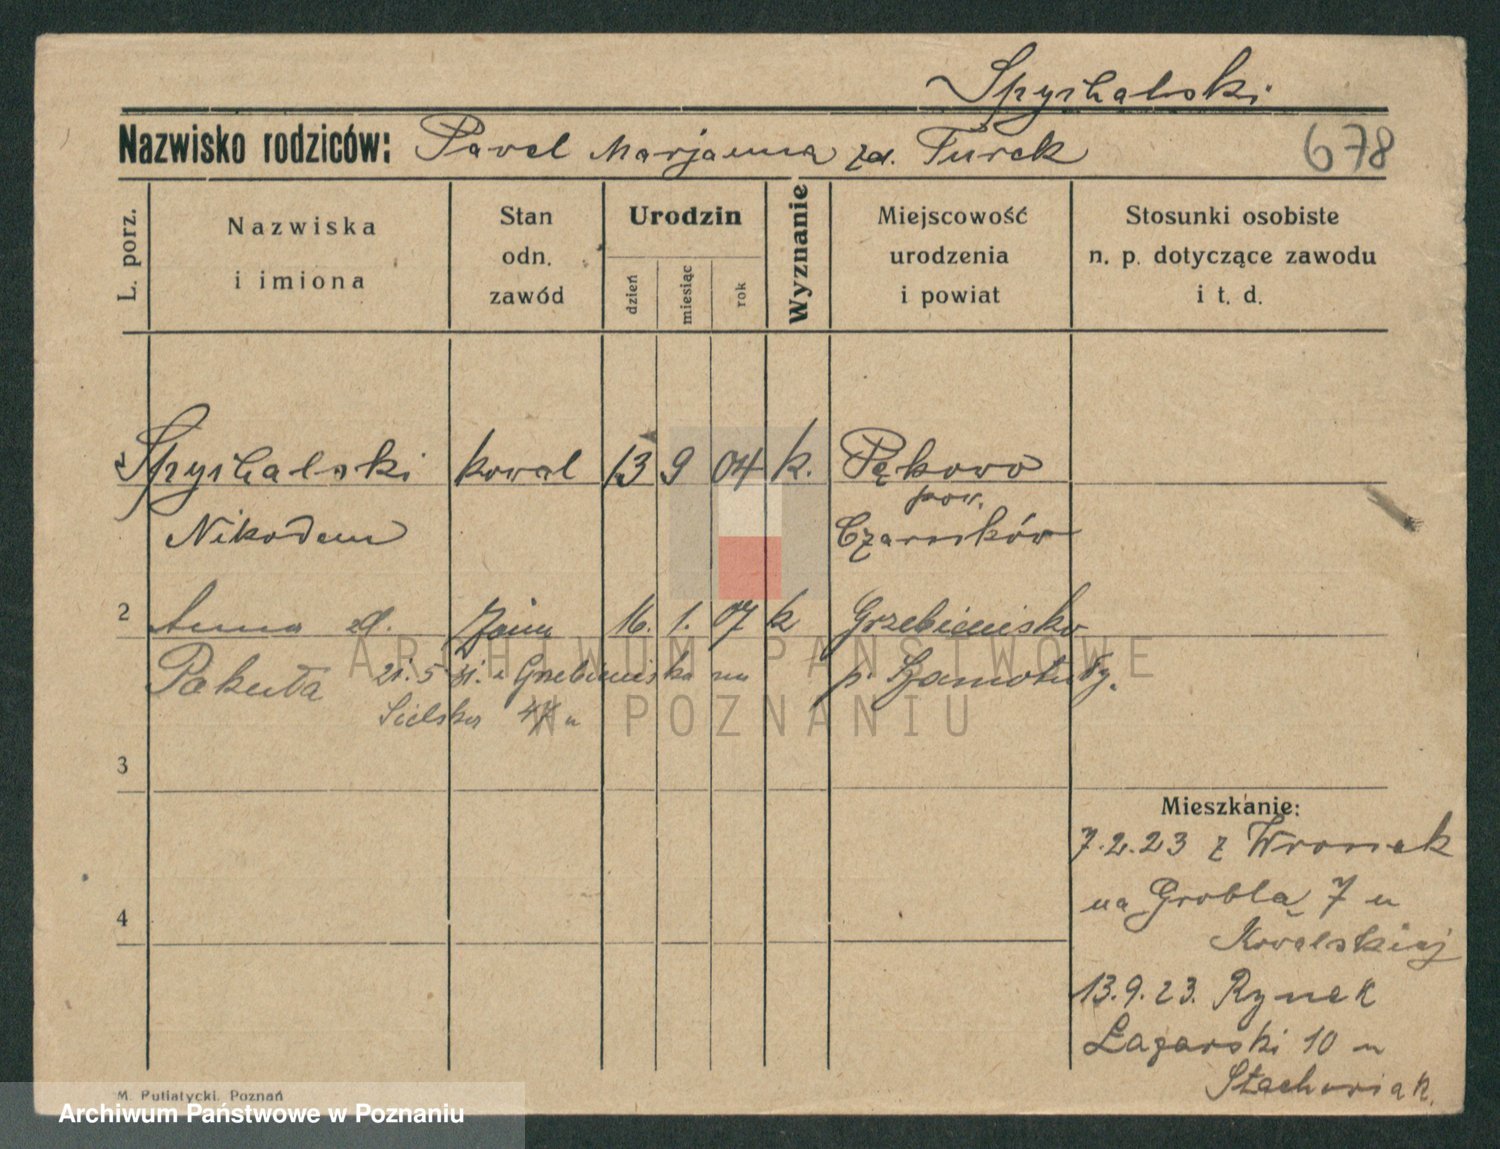 Spychalski
Nazwisko rodziców: Paweł Marjanna zd. Turek 678
L. porz.
Nazwiska
i imiona
Stan
odn.
zawód
Urodzin
dzień
miesiąc
rok
Wyznanie
Miejscowość
urodzenia
i powiat
Stosunki osobiste
n. p. dotyczące zawodu
i t. d.
Spychalski kowal 13 9 04 k. Pękowo
pow.
Nikodem Czarnków
2 Anna d. 16. 1. 07 k Grzebienisko
Pakuła 21.5 z Grzebieniska na p. Szamotuły.
Sielska
3
Mieszkanie:
7.2.23 z Wronek
na Groblą 7 u
Kowalskiej
4
13.9.23. Rynek
Łazarski 10 u
Stachowiak.
M. Putiatycki, Poznań
ARCHIWUM PAŃSTWOWE
W POZNANIU
Archiwum Państwowe w Poznaniu